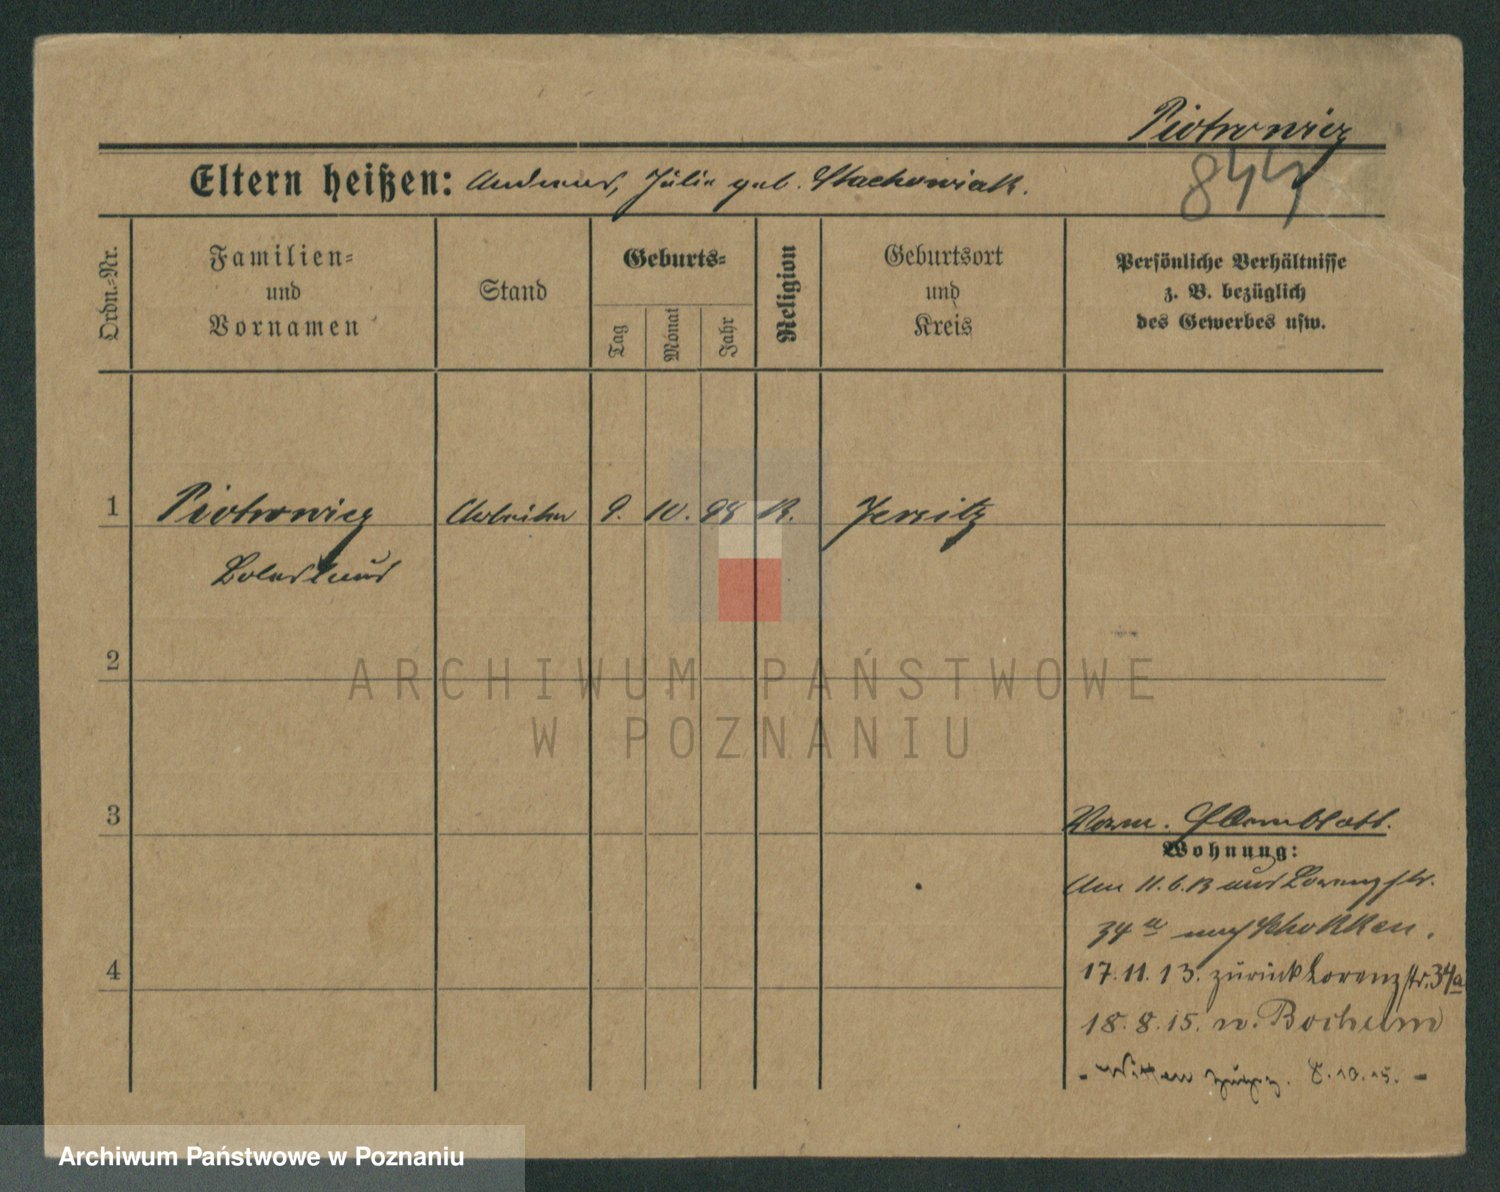 Piotrowicz
844
Eltern heißen: Andreas, Julie geb. Stachowiak.
Ordn.-Nr.
Familien-
und
Vornamen
Stand
Geburts-
Tag
Monat
Jahr
Religion
Geburtsort
und
Kreis
Persönliche Verhältnisse
z. B. bezüglich
des Gewerbes usw.
1 Piotrowicz Arbeiter 9. 10. 98 K. Jersitz
Boleslaus
2
ARCHIWUM PAŃSTWOWE
W POZNANIU
3
Vorm.
Wohnung:
Am 11.6.13 aus Lorenzstr.
34a nach Schokken.
4
17.11.13. zurück Lorenzstr. 34a
18.8.15. n. Bochum
- Witten 8.10.15. -
Archiwum Państwowe w Poznaniu